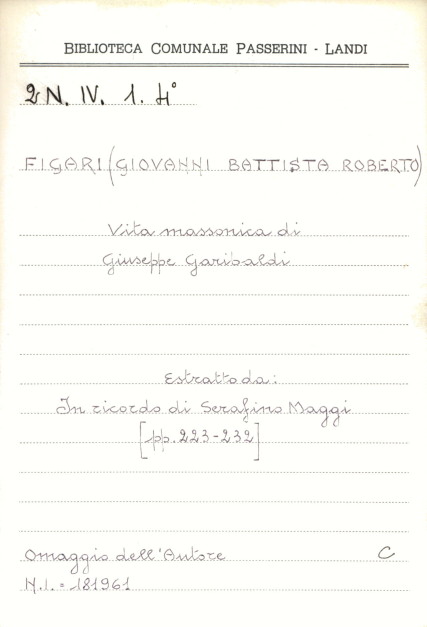 BIBLIOTECA COMUNALE PASSERINI - LANDI
2 N. IV. 1. 4°
FIGARI (GIOVANNI BATTISTA ROBERTO)
Vita massonica di
Giuseppe Garibaldi
Estratto da:
In ricordo di Serafino Maggi
[pp. 223-232]
Omaggio dell'Autore C
N.I. = 181961